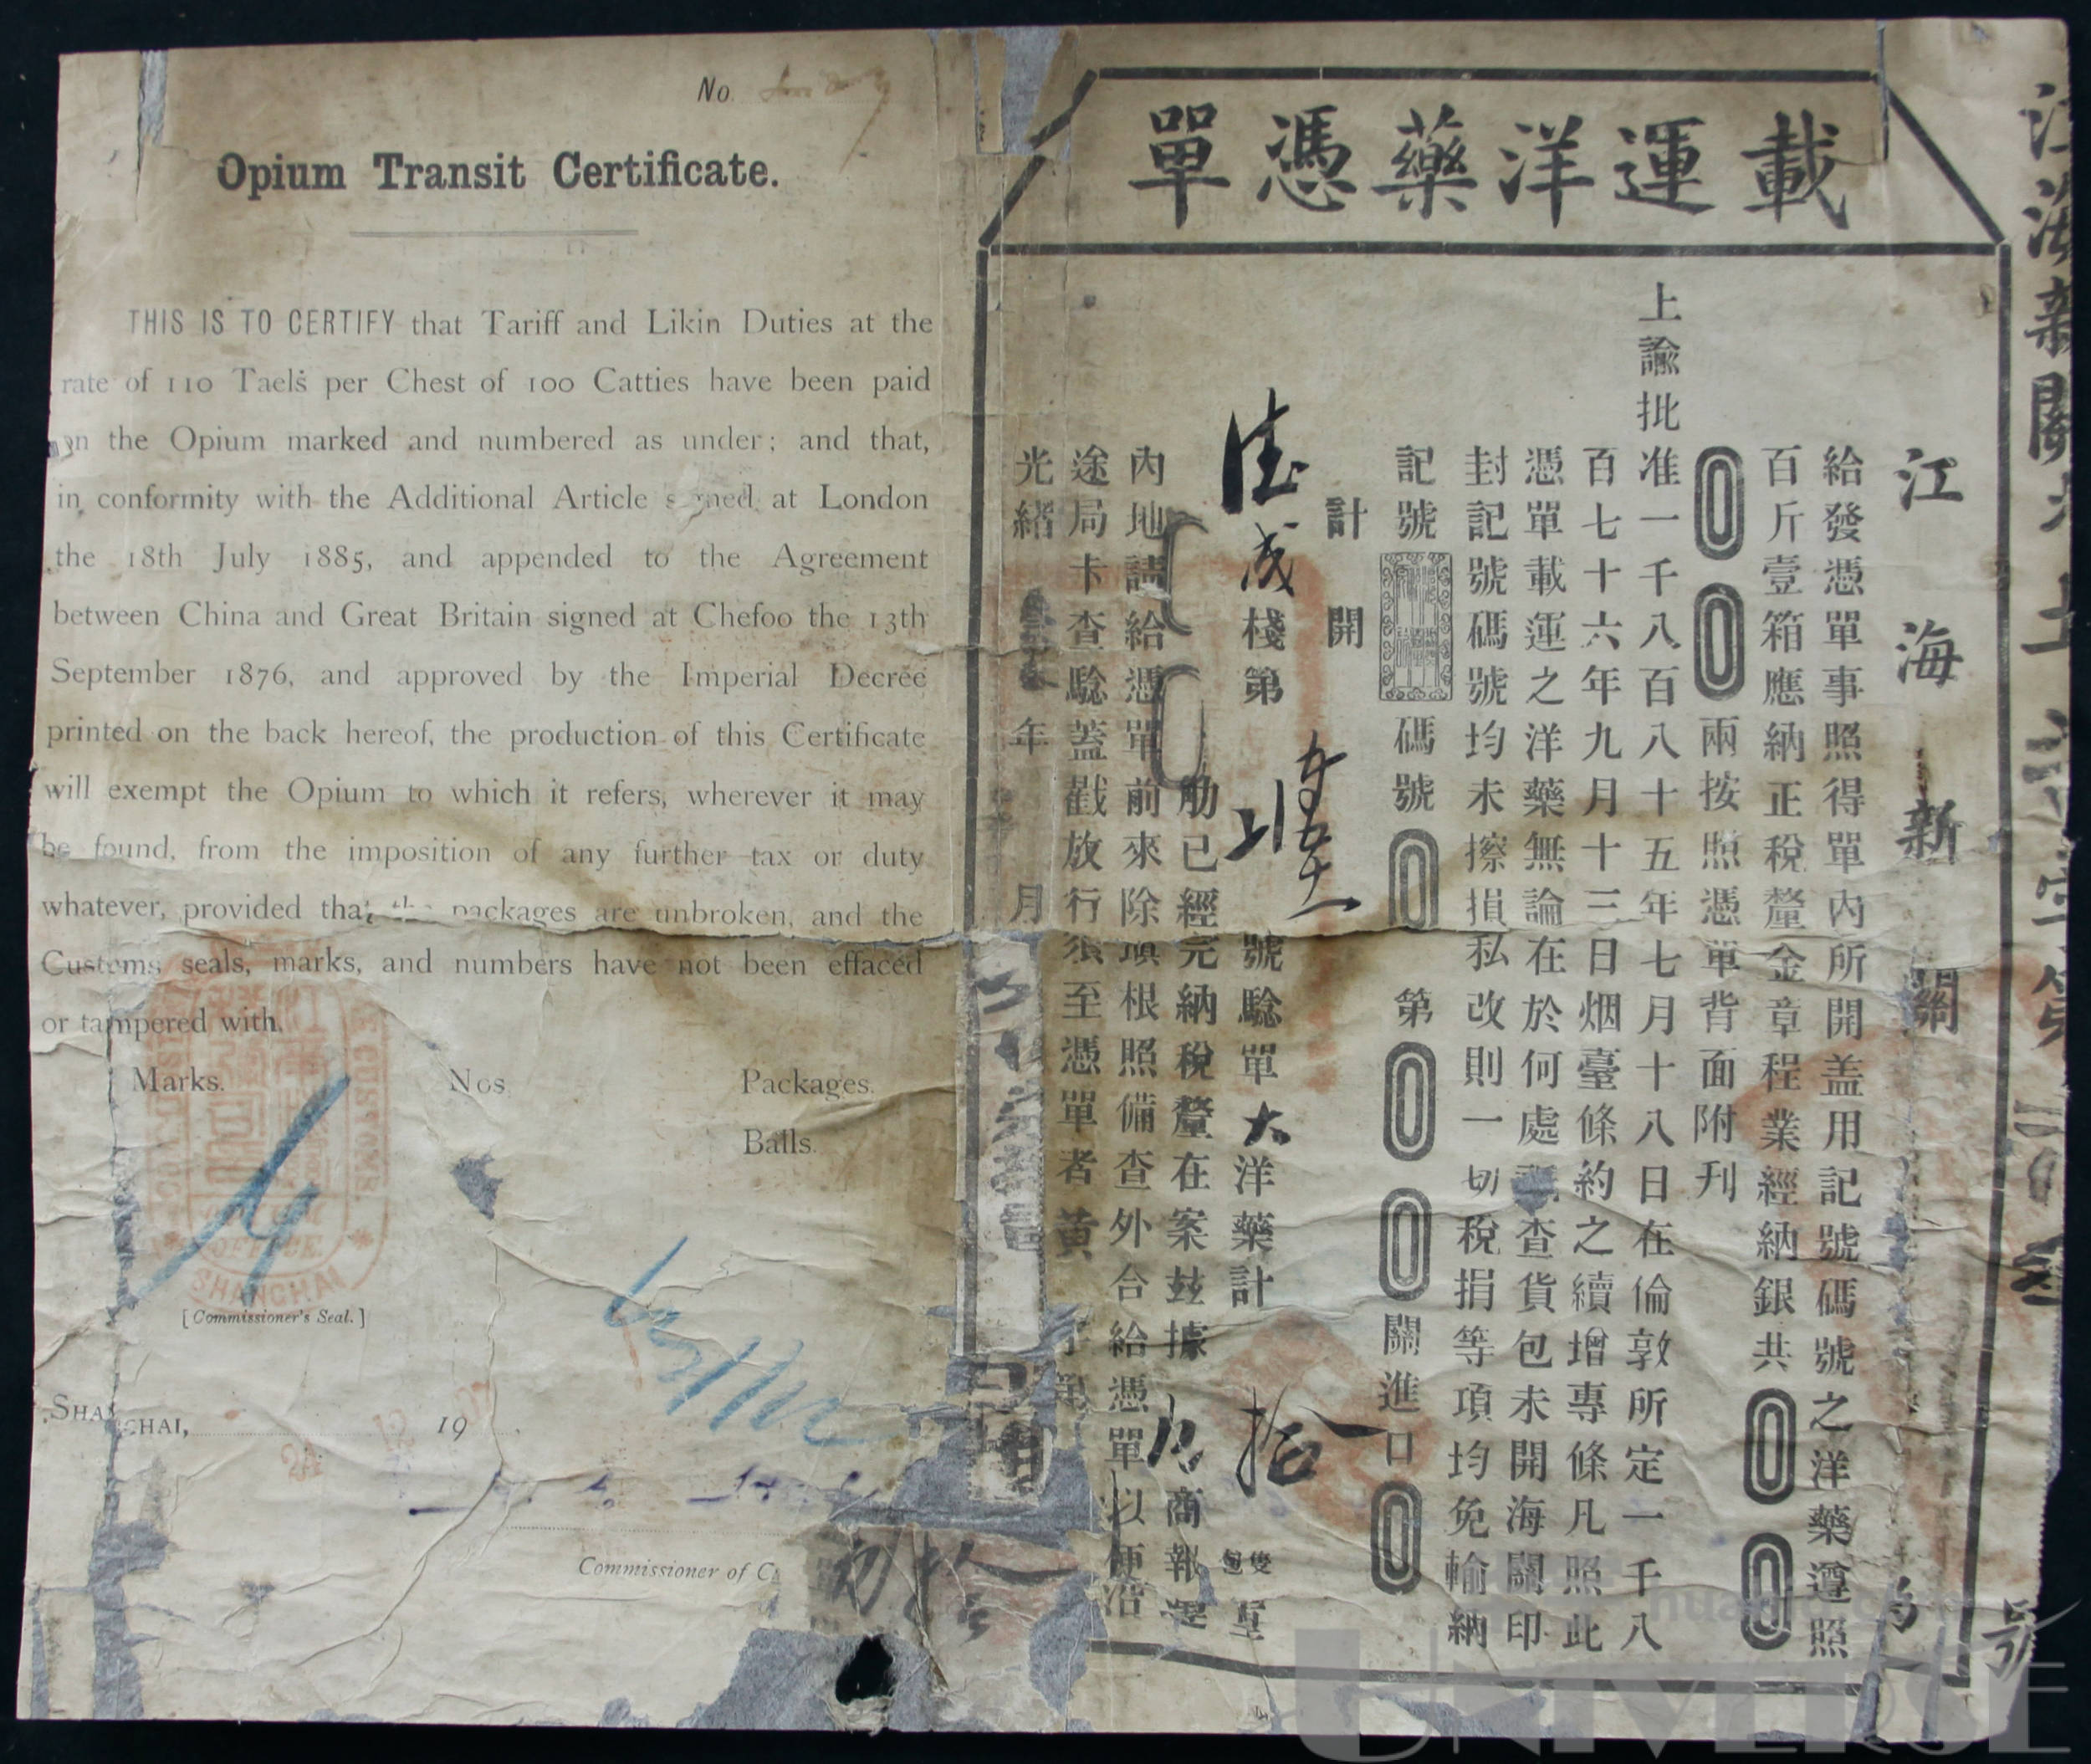 No.
Opium Transit Certificate.
THIS IS TO CERTIFY that Tariff and Likin Duties at the
rate of 110 Taels per Chest of 100 Catties have been paid
on the Opium marked and numbered as under; and that,
in conformity with the Additional Article signed at London
the 18th July 1885, and appended to the Agreement
between China and Great Britain signed at Chefoo the 13th
September 1876, and approved by the Imperial Decree
printed on the back hereof, the production of this Certificate
will exempt the Opium to which it refers, wherever it may
be found, from the imposition of any further tax or duty
whatever, provided that the packages are unbroken, and the
Customs seals, marks, and numbers have not been effaced
or tampered with.
Marks. Nos. Packages.
Balls.
CUSTOMS
OFFICE
SHANGHAI
[Commissioner's Seal.]
SHANGHAI, 24 12 19
Commissioner of
載運洋藥憑單
江海新關
給發憑單事照得單內所開盖用記號碼號之洋藥遵照
百斤壹箱應納正稅釐金章程業經納銀共
兩按照憑單背面附刊
上諭批准一千八百八十五年七月十八日在倫敦所定一千八
百七十六年九月十三日烟臺條約之續增專條凡照此
憑單載運之洋藥無論在於何處查貨包未開海關印
封記號碼號均未擦損私改則一切稅捐等項均免輸納
記號 碼號 第 關進口
計開
成棧第 號驗單大洋藥計 拾
觔已經完納稅釐在案玆據 商報運
內地請給憑單前來除填根照備查外合給憑單以便沿
途局卡查驗蓋戳放行須至憑單者
光緒 年 月
江海新關
號
UNIVERSE